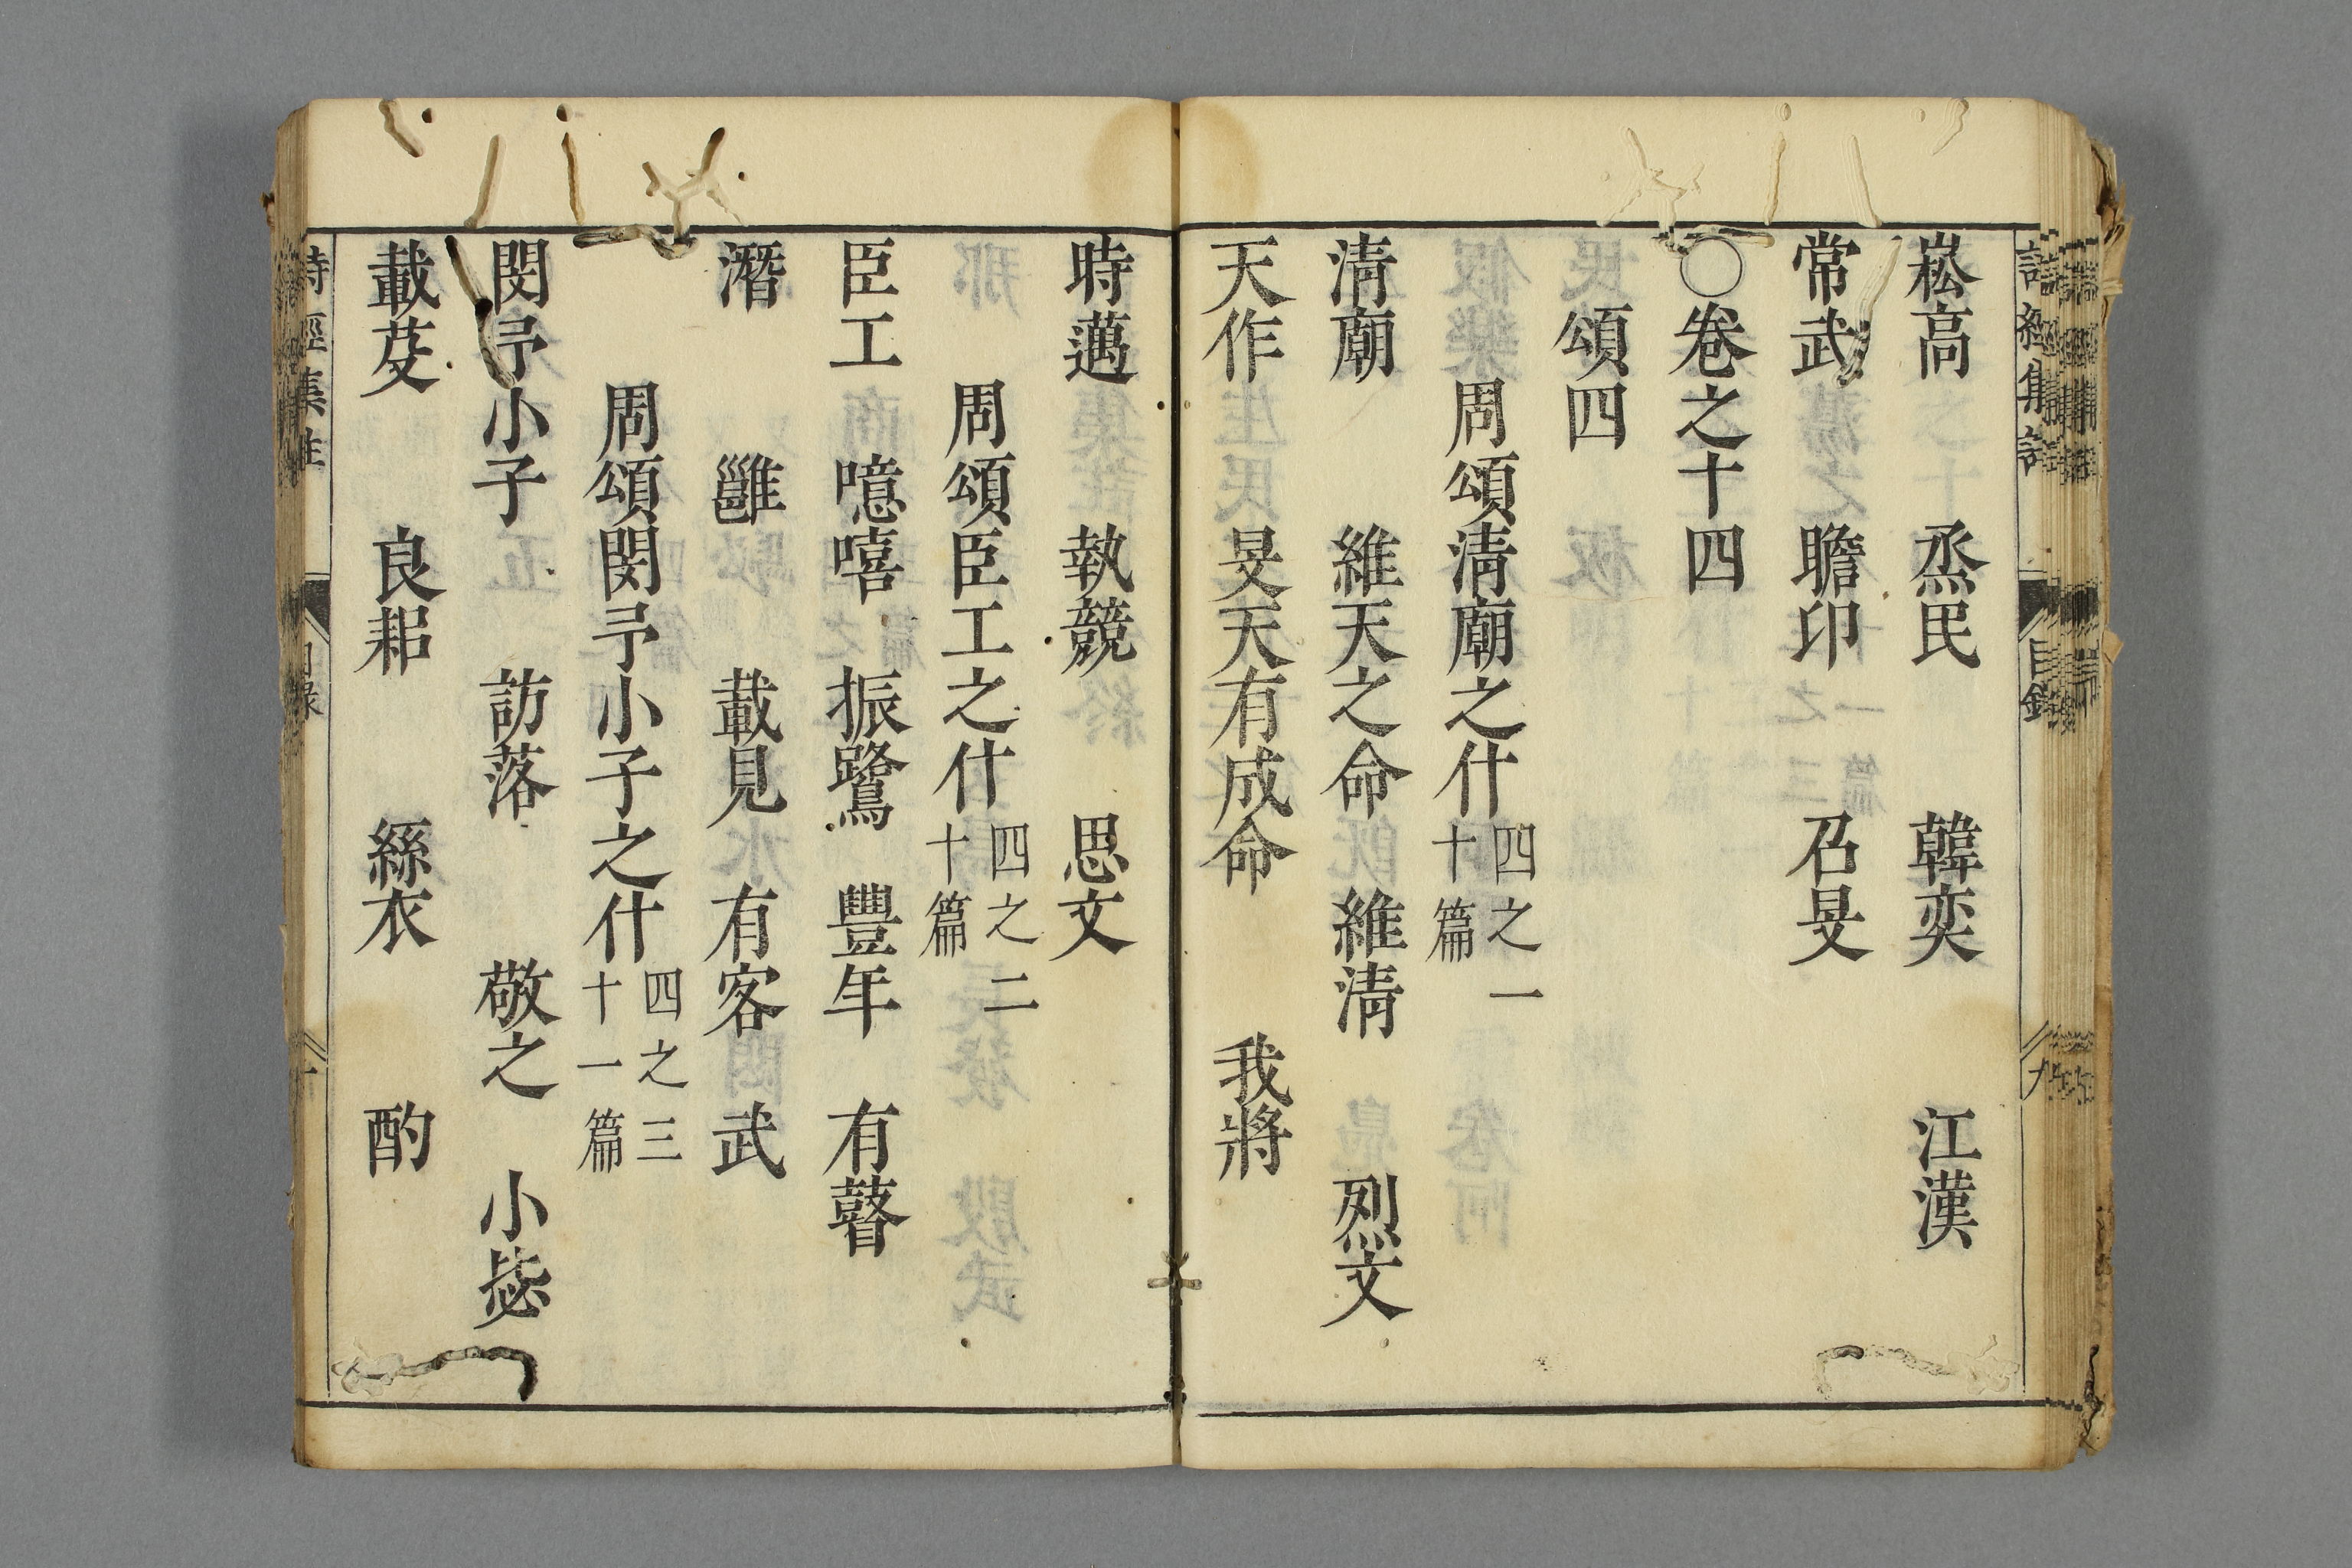 崧高 烝民 韓奕 江漢
常武 瞻卬 召旻
○卷之十四
頌四
周頌清廟之什 四之一 十篇
清廟 維天之命 維清 烈文
天作 昊天有成命 我將
時邁 執競 思文
周頌臣工之什 四之二 十篇
臣工 噫嘻 振鷺 豐年 有瞽
潛 雝 載見 有客 武
周頌閔予小子之什 四之三 十一篇
閔予小子 訪落 敬之 小毖
載芟 良耜 絲衣 酌